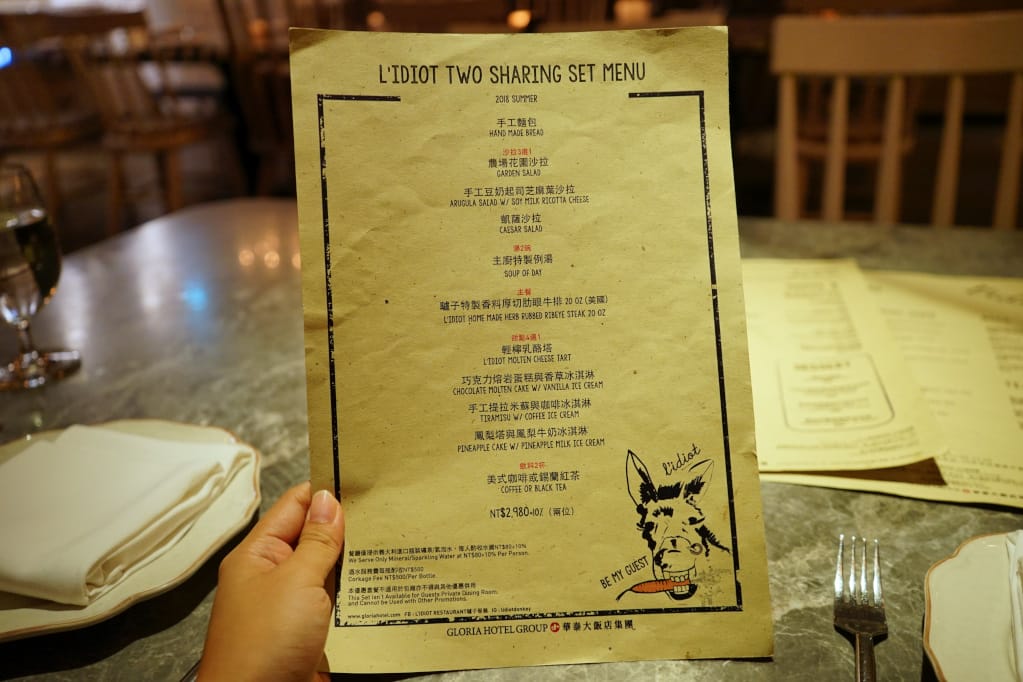 L'IDIOT TWO SHARING SET MENU
2018 SUMMER
手工麵包
HAND MADE BREAD
沙拉3選1
農場花園沙拉
GARDEN SALAD
手工豆奶起司芝麻葉沙拉
ARUGULA SALAD W/ SOY MILK RICOTTA CHEESE
凱薩沙拉
CAESAR SALAD
湯2碗
主廚特製例湯
SOUP OF DAY
主餐
驢子特製香料厚切肋眼牛排 20 OZ (美國)
L'IDIOT HOME MADE HERB RUBBED RIBEYE STEAK 20 OZ
甜點4選1
輕檸乳酪塔
L'IDIOT MOLTEN CHEESE TART
巧克力熔岩蛋糕與香草冰淇淋
CHOCOLATE MOLTEN CAKE W/ VANILLA ICE CREAM
手工提拉米蘇與咖啡冰淇淋
TIRAMISU W/ COFFEE ICE CREAM
鳳梨塔與鳳梨牛奶冰淇淋
PINEAPPLE CAKE W/ PINEAPPLE MILK ICE CREAM
飲料2杯
美式咖啡或錫蘭紅茶
COFFEE OR BLACK TEA
NT$2,980+10% (兩位)
l'idiot
BE MY GUEST
餐廳僅提供義大利進口瓶裝礦泉/氣泡水，每人酌收水資NT$80+10%
We Serve Only Mineral/Sparkling Water at NT$80+10% Per Person.
酒水服務費每瓶酌收NT$500
Corkage Fee NT$500/Per Bottle.
本優惠套餐不適用於包廂亦不得與其他優惠併用
This Set Isn't Available for Guests Private Dining Room.
and Cannot be Used with Other Promotions.
www.gloriahotel.com FB : L'IDIOT RESTAURANT驢子餐廳 IG : lidiotdonkey
GLORIA HOTEL GROUP 華泰大飯店集團